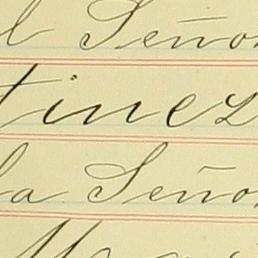 l Señor
tinez
la Señor